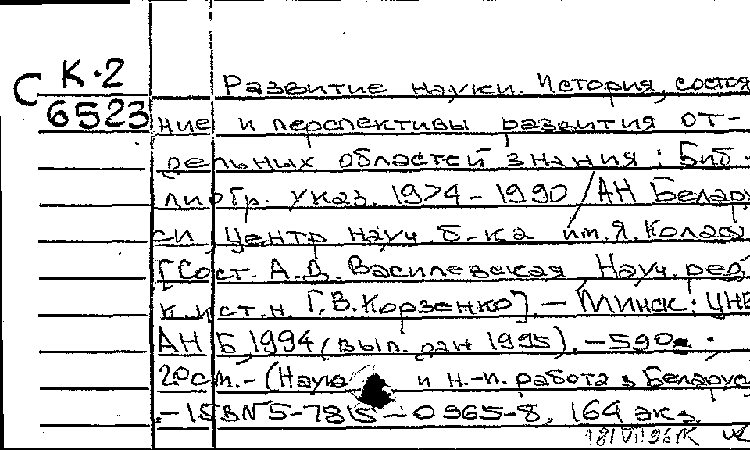 С К.2
6523
Развитие науки. История, состоя
ние и перспективы развития от-
дельных областей знания: Биб-
лиогр. указ. 1974-1990 / АН Белару
си, Центр. науч. б-ка им. Я. Коласа
[Сост. А.Д. Василевская, Науч. ред.
к.ист.н. Г.В. Корзенко]. - Минск: ЦНБ
АН Б, 1994 (вып. дан. 1995). - 590с.;
20см. - (Наука и н.-и. работа в Беларус
. - ISBN 5-7815-0365-8, 164 экз.